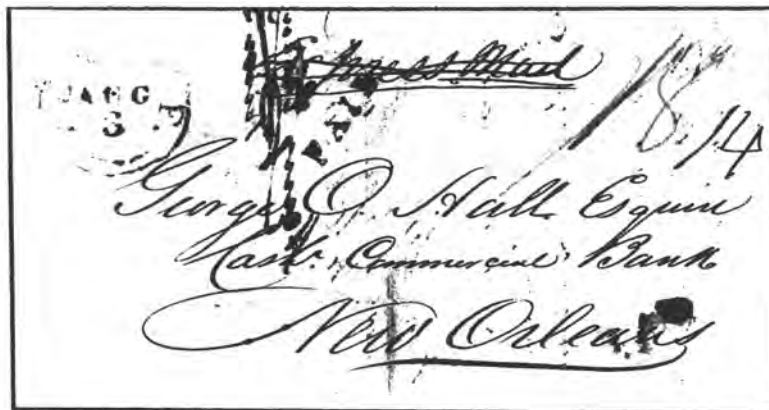 Express Mail
AUG
3
18
14
George O. Hall Esquire
Cashr. Commercial Bank
New Orleans